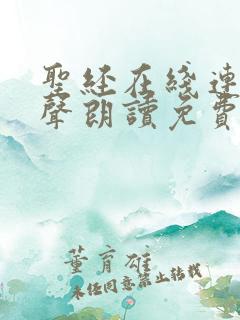 聖經在綫連
聲朗讀免費
董育雄
未经同意禁止转载